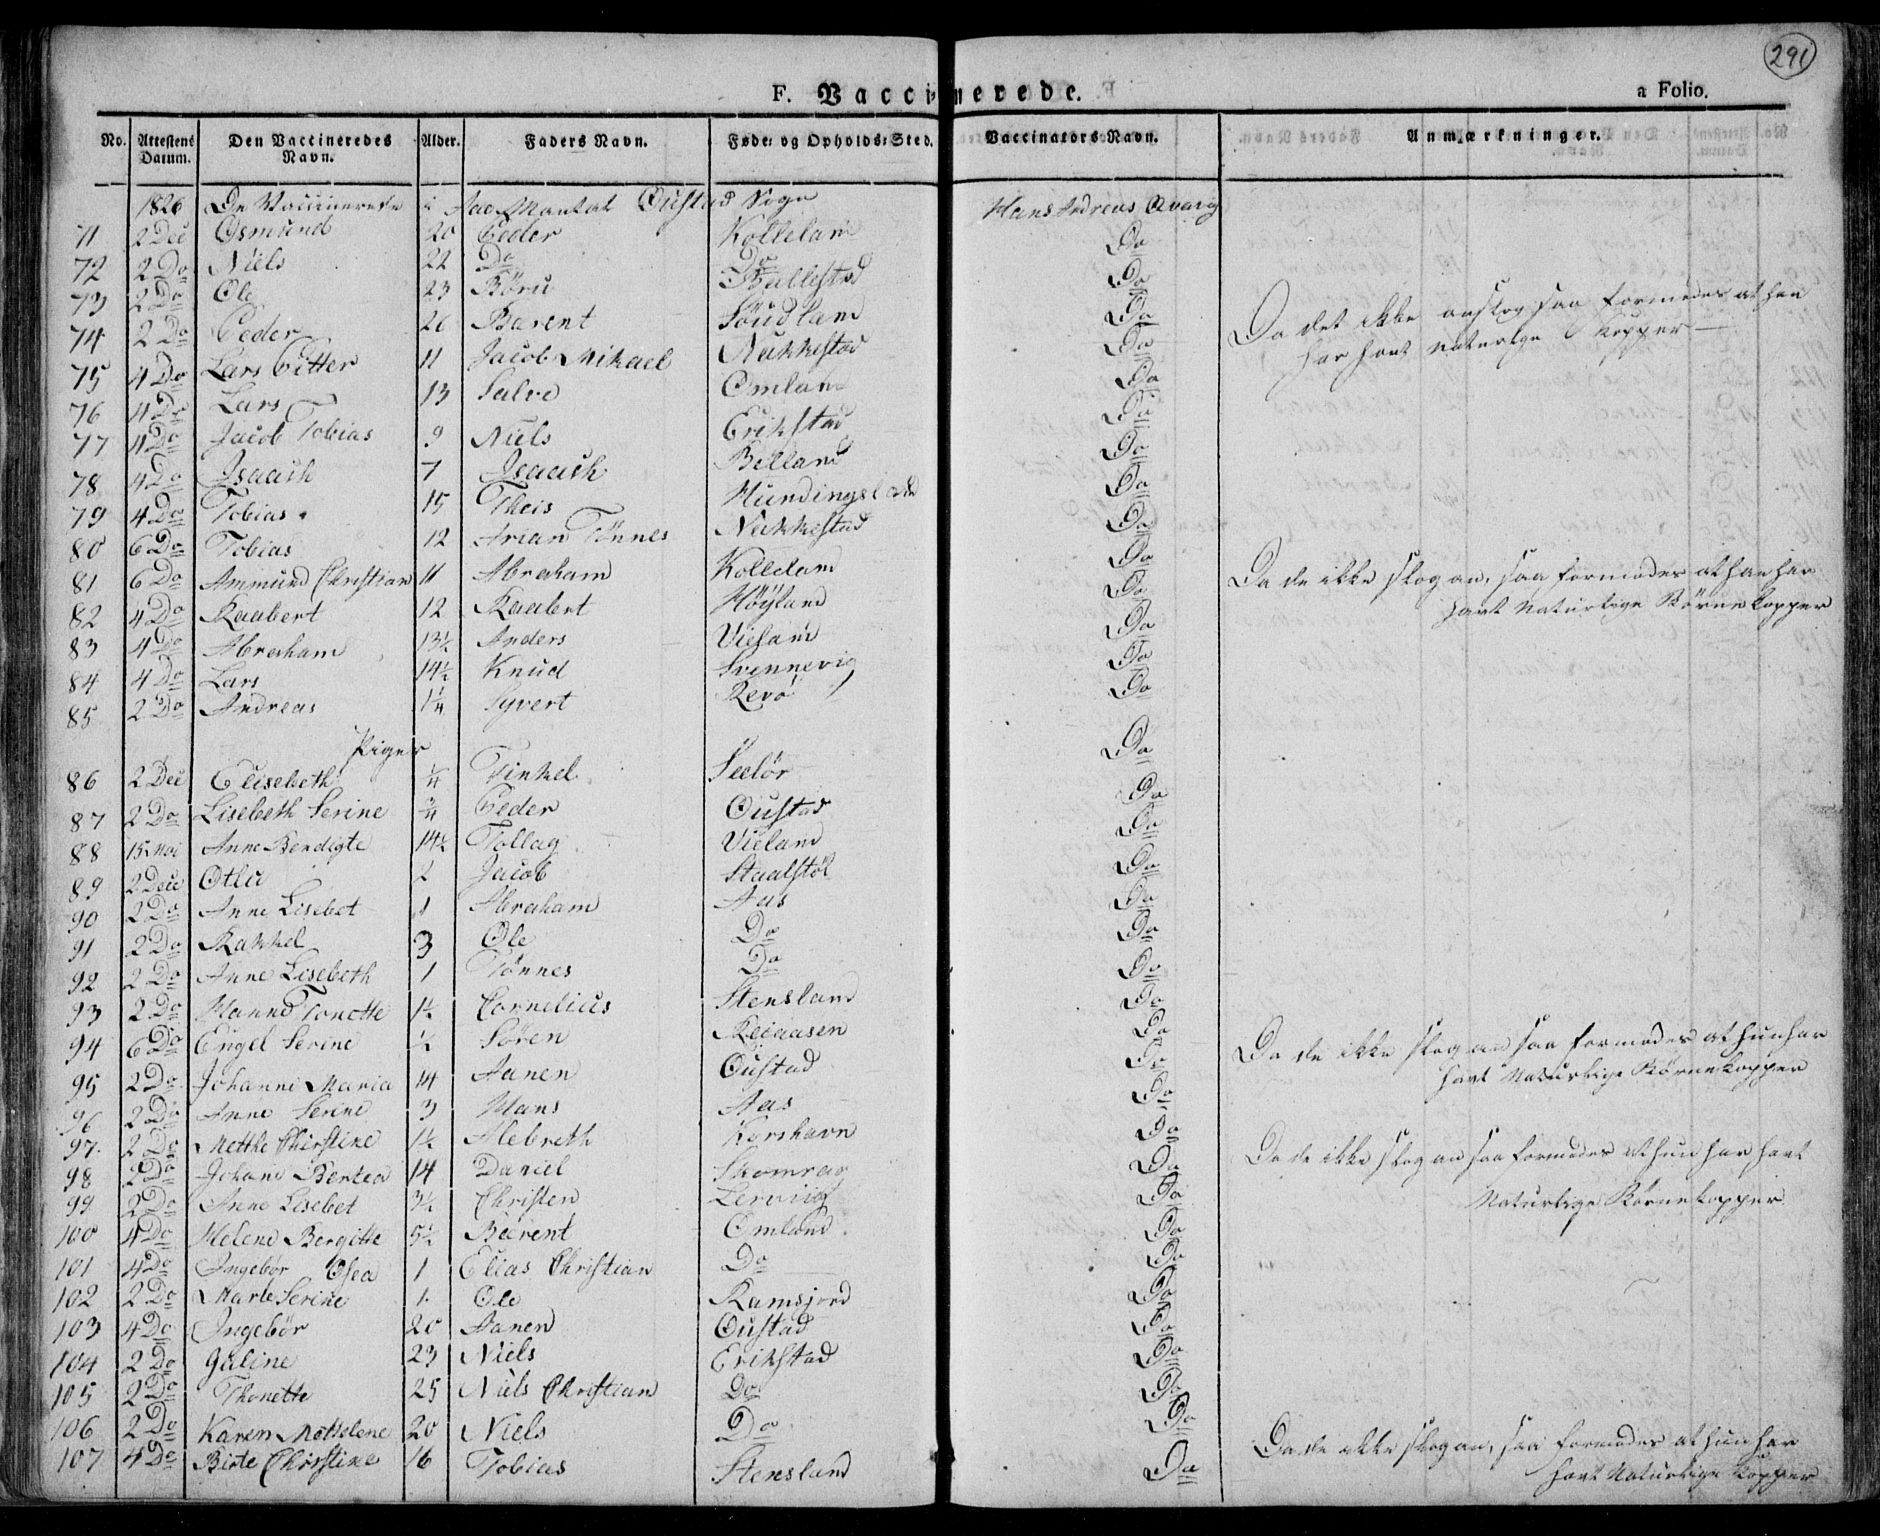 291
F. Vaccinerede.
a Folio.
No. Attestens Datum. Den Vaccineredes Navn. Alder. Faders Navn. Føde- og Opholds-Sted. Vaccinators Navn. Anmærkninger.
1826 De Vaccinerede i Aae Mantal Oustad Sogn Hans Andreas Qvarig
71 2 Dec Osmund 20 Peder Kollelam Do
72 2 Do Niels 22 Do Do Do
73 2 Do Ole 23 Børu Ballestad Do
74 2 Do Peder 26 Barent Søudlam Do Da det ikke anslog saa formodes at han
har havt Naturlige Kopper
75 4 Do Lars Pitter 11 Jacob Mikael Nakkestad Do
76 4 Do Lars 13 Salve Omland Do
77 4 Do Jacob Tobias 9 Niels Erikstad Do
78 4 Do Isaach 7 Isaach Belland Do
79 4 Do Tobias 15 Theis Hundingsland Do
80 6 Do Tobias 12 Arian Tønnes Nakkestad Do
81 6 Do Ammund Christian 11 Abraham Kollelam Do Da de ikke slog an, saa formodes at han har
havt Naturlige Børnekopper
82 4 Do Raabert 12 Raabert Høyland Do
83 4 Do Abraham 13½ Anders Vielam Do
84 4 Do Lars 14½ Knud Svennevig Do
85 2 Do Andreas 1¼ Syvert Revø Do
Piger
86 2 Dec Elisebeth ¼ Tinkel Seelør Do
87 2 Do Lisebeth Serine ¾ Peder Oustad Do
88 15 Mai Anne Bendigte 14½ Tollag Vieland Do
89 2 Dec Otlu 2 Jacob Staalstøl Do
90 2 Do Anne Lisebet 1 Abraham Aas Do
91 2 Do Rakkel 3 Ole Do Do
92 2 Do Anne Lisebeth 1 Tønnes Do Do
93 2 Do Hanne Tonette 1½ Cornelius Stensland Do
94 6 Do Engel Serine ½ Søren Reiaasen Do
95 2 Do Johanne Maria 14 Aanen Oustad Do Da de ikke slog an saa formodes at hun har
havt Naturlige Børnekopper
96 2 Do Anne Serine 3 Hans Aas Do
97. 2 Do Metthe Christine 1½ Alebreth Korshavn Do
98 2 Do Johane Bentea 14 Daniel Skomrag Do Da de ikke slog an saa formodes at hun har havt
Naturlige Børnekopper
99 2 Do Anne Lisebet 3½ Christen Lerviig Do
100 4 Do Helene Bergitte 5½ Beerent Omland Do
101 4 Do Ingebor Osea 1 Elias Christian Do Do
102 2 Do Marte Serine 1. Ole Ramsjord Do
103 4 Do Ingebør 20 Aanen Oustad Do
104 2 Do Guline 23 Niels Erikstad Do
105 2 Do Thonette 25 Niels Christian Do Do
106 2 Do Karen Mothelene 20 Niels Do Do
107 4 Do Birte Christine 16 Tobias Stensland Do Da de ikke slog an, saa formodes at hun har
havt Naturlige Kopper